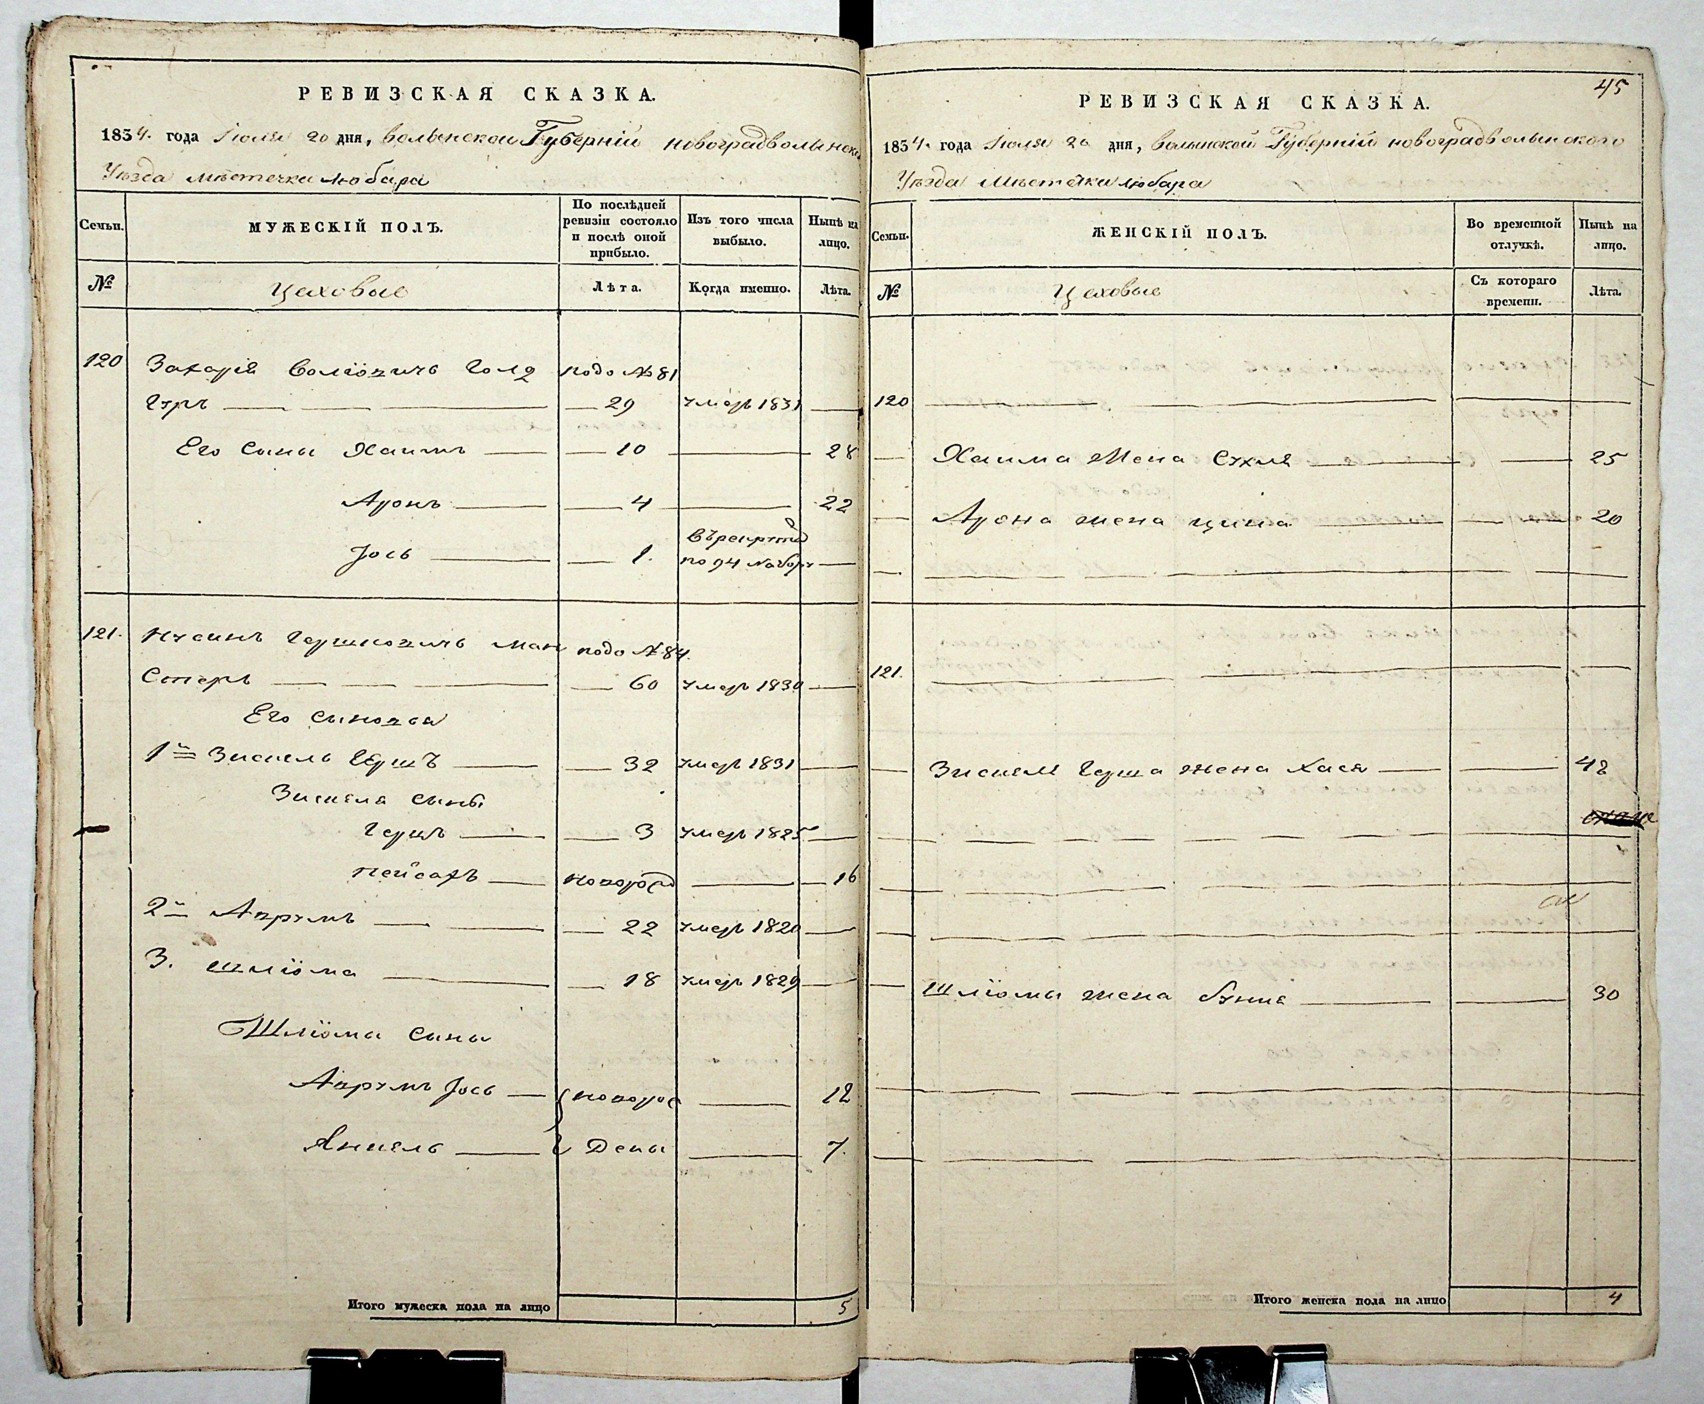 РЕВИЗСКАЯ СКАЗКА.
1834. года Іюля 20 дня, Волынской Губерніи Новоградволынско
Уѣзда мѣстечка Любара
Семьи.
МУЖЕСКІЙ ПОЛЪ.
По послѣдней ревизіи состояло и послѣ оной прибыло.
Изъ того числа выбыло.
Нынѣ на лицо.
№
Цеховые
Лѣта.
Когда именно.
Лѣта.
120 Захарій Волїовичъ Голд подъ №81
29 умеръ 1831
Его сыны Хаимъ 10 28
Аронъ 4 22
Въ рекрут
Іось 1. по 94 набору
121. Нусинъ Гершковичъ Ман подъ №84.
Стеръ 60 умеръ 1830
Его сыновья
1й Зискель Гершъ 32 умеръ 1831
Зискеля сыны
Гершъ 3 умеръ 1825
Пейсахъ новорож 16
2й Аврумъ 22 умеръ 1820
3. Шліома 18 умеръ 1829
Шліома сыны
Аврумъ Іось новорож 12
Анкель Дены 7.
Итого мужеска пола на лицо 5
45
РЕВИЗСКАЯ СКАЗКА.
1834. года Іюля 20 дня, Волынской Губерніи Новоградволынского
Уѣзда Мѣстечка Любара
Семьи.
ЖЕНСКІЙ ПОЛЪ.
Во временной отлучкѣ.
Нынѣ на лицо.
№
Цеховые
Съ котораго времени.
Лѣта.
120
Хаима Жена Сухля 25
Арона жена Цина 20
121.
Зискеля Герша жена Хася 42
Шліомы жена 30
Итого женска пола на лицо 4